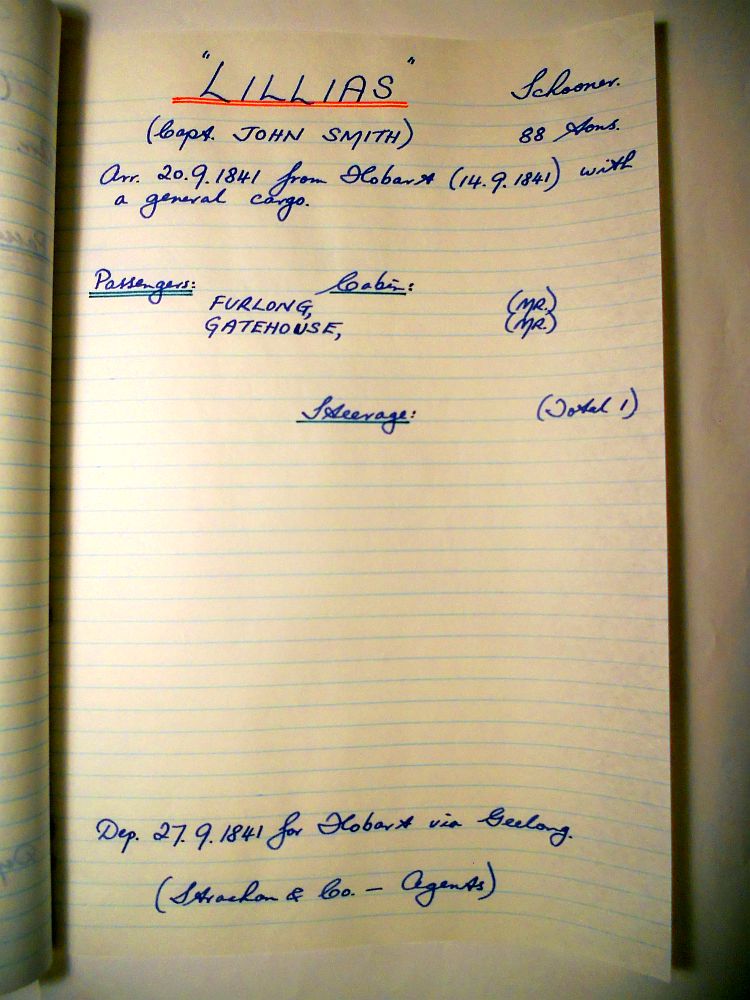 "LILLIAS" Schooner.
(Capt. JOHN SMITH) 88 tons.
Arr. 20.9.1841 from Hobart (14.9.1841) with
a general cargo.
Passengers: Cabin:
FURLONG, (MR.)
GATEHOUSE, (MR.)
Steerage: (Total 1)
Dep. 27.9.1841 for Hobart via Geelong.
(Strachan & Co. – Agents)